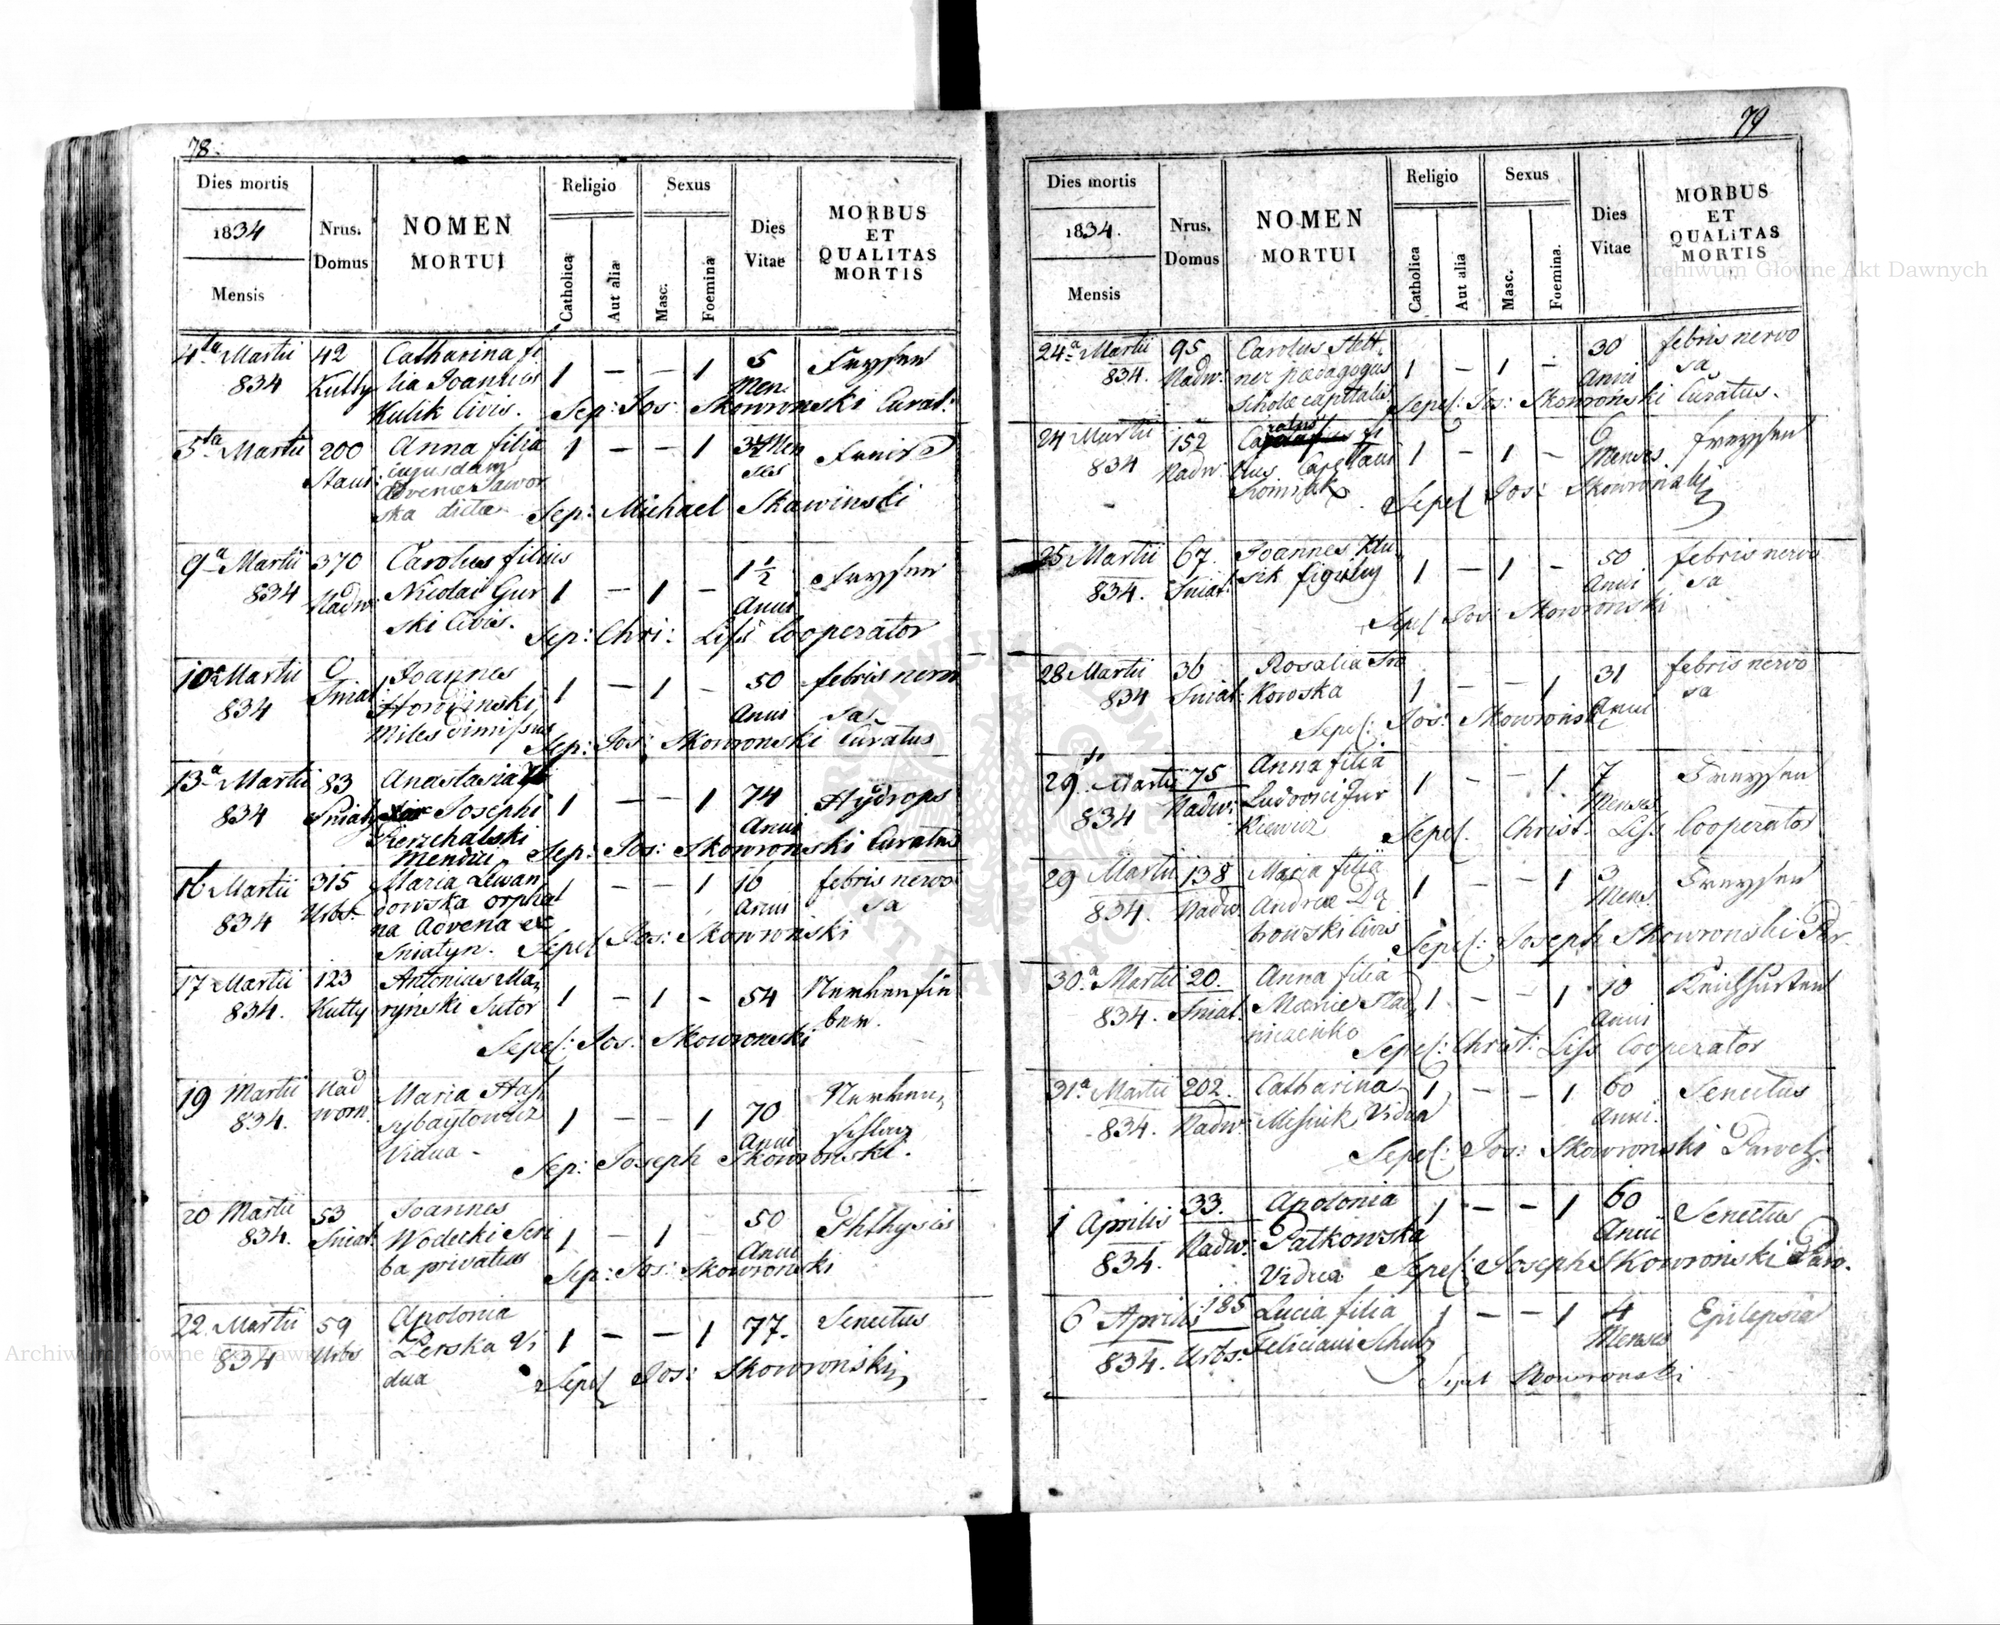 78.
Dies mortis
1834
Mensis
Nrus. Domus
NOMEN MORTUI
Religio
Catholica
Aut alia
Sexus
Masc.
Foemina
Dies Vitae
MORBUS ET QUALITAS MORTIS
4ta Martii 42 Catharina fi
834 Kutty lia Joannis 1 — — 1 5 Men.
Kulik Civis. Sep: Jos: Skowronski Curat:
5ta Martii 200 Anna filia 1 — — 1 3½ Men
Stani: cujusdam ses
Advenae Jawor
ska dictae Sep: Michael Skawinski
9a Martii 370 Carolus filius 1½
834 Nadw: Nicolai Gur 1 — 1 — Anni
ski Civis. Sep: Chri: Liss Cooperator
10a Martii Joannes 50 febris nervo
834 Sniat 1 — 1 — Anni sa
Miles dimissus Sep: Jos: Skowronski Curatus
13a Martii 83 Anastasia
834 Sniaty Josephi 1 — — 1 74 Hydrops
Pierzchalski Anni
Mendici Sep: Jos: Skowronski Curatus
16 Martii 315 Maria Lewan 1 — — 1 16 febris nervo
834 Urbs. dowska orpha Anni sa
na Advena ex
Sniatyn. Sepel Jos: Skowronski
17 Martii 123 Antonius Ma
834. Kutty rynski Sutor 1 — 1 — 54
Sepel: Jos: Skowronski
19 Martii Nad Maria
834. worn. 1 — — 1 70
Vidua - Anni
Sep: Joseph Skowronski.
20 Martii 53 Joannes 50 Phthysis
834. Sniat. Wodecki Scri 1 — 1 — Anni
ba privatus Sep: Jos: Skowronski
22 Martii 59 Apolonia
834 Urbs Perska Vi 1 — — 1 77. Senectus
dua Sepel Jos: Skowronski
79
Dies mortis
1834.
Mensis
Nrus. Domus
NOMEN MORTUI
Religio
Catholica
Aut alia
Sexus
Masc.
Foemina.
Dies Vitae
MORBUS ET QUALITAS MORTIS
24a Martii 95 Carolus 30 febris nervo
834. Nadw. ner paedagogus 1 — 1 — Anni sa
Scholae capitalis Sepel: Jos: Skowronski Curatus.
24 Martii 152 fi 6
834 Nadw: lius 1 — 1 — Menses
Sepel Jos: Skowronski
25 Martii 67 Joannes Klu 50 febris nervo
834. Sniat: sik figulus 1 — 1 — Anni sa
Sepel Jos: Skowronski
28 Martii 36 Rosalia 31 febris nervo
834 Sniat: kowska 1 — — 1 Anni sa
Sepel: Jos: Skowronski
29 Martii 75 Anna filia 1 — — 1 7
834 Nadw: Ludovici Jur Menses
kiewicz Sepel. Christ. Liss Cooperator
29 Martii 138 Maria filia 1 — — 1 3
834. Nadw. Andreae Dą Mens.
browski Civis Sepel: Joseph Skowronski Par.
30a Martii 20. Anna filia 1 — — 1 10
834. Sniat. Mariae Stad Anni
niczenko Sepel: Christ: Liss Cooperator
31a Martii 202. Catharina 1 — — 1 60 Senectus
834. Nadw: Vidua Anni.
Sepel: Jos: Skowronski
1 Aprilis 33. Apolonia 1 — — 1 60 Senectus
834. Nadw: Patkowska Anni
Vidua Sepel: Joseph Skowronski Paro.
6 Aprilis 185 Lucia filia 1 — — 1 4 Epilepsia
834. Urbs. Feliciani Schulz Menses
Sepel Skowronski
Archiwum Główne Akt Dawnych
Archiwum Główne Akt Dawnych
ARCHIWUM GŁÓWNE AKT DAWNYCH